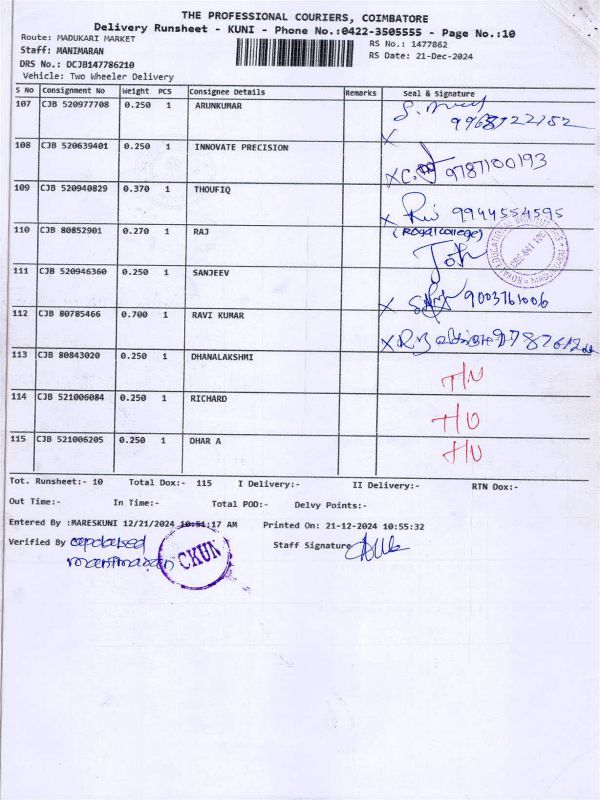 THE PROFESSIONAL COURIERS, COIMBATORE
Delivery Runsheet - KUNI - Phone No.:0422-3505555 - Page No.:10
Route: MADUKARI MARKET
RS No.: 1477862
Staff: MANIMARAN
RS Date: 21-Dec-2024
DRS No.: DCJB147786210
Vehicle: Two Wheeler Delivery
S No Consignment No Weight PCS Consignee Details Remarks Seal & Signature
107 CJB 520977708 0.250 1 ARUNKUMAR
108 CJB 520639401 0.250 1 INNOVATE PRECISION 9787100193
109 CJB 520940829 0.370 1 THOUFIQ 9944554595
110 CJB 80852901 0.270 1 RAJ (Royal college)
111 CJB 520946360 0.250 1 SANJEEV 9003761006
112 CJB 80785466 0.700 1 RAVI KUMAR
113 CJB 80843020 0.250 1 DHANALAKSHMI
114 CJB 521006084 0.250 1 RICHARD
115 CJB 521006205 0.250 1 DHAR A
Tot. Runsheet:- 10 Total Dox:- 115 I Delivery:- II Delivery:- RTN Dox:-
Out Time:- In Time:- Total POD:- Delvy Points:-
Entered By :MARESKUNI 12/21/2024 10:51:17 AM Printed On: 21-12-2024 10:55:32
Verified By
CKUN
Staff Signature